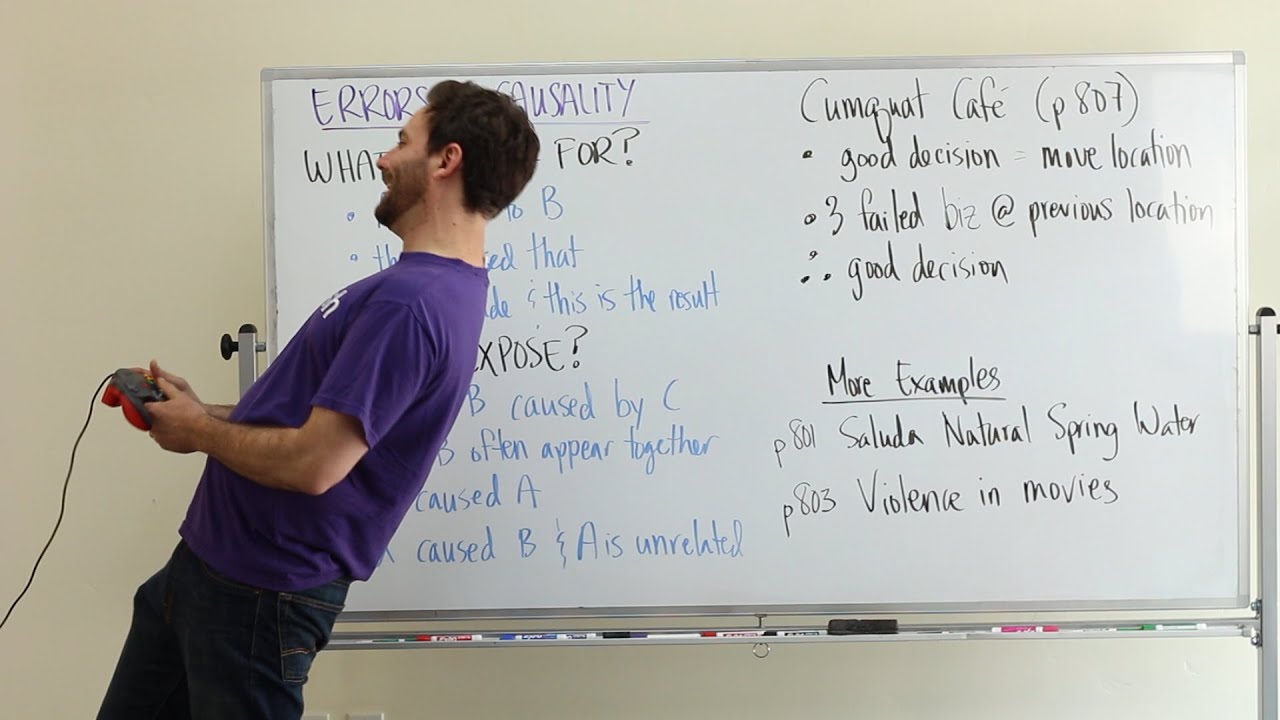 ERRORS CAUSALITY
WHAT FOR?
• to B
• that
& this is the result
EXPOSE?
B caused by C
B often appear together
caused A
caused B & A is unrelated
Cumquat Café (p807)
• good decision = move location
• 3 failed biz @ previous location
∴ good decision
More Examples
p801 Saluda Natural Spring Water
p803 Violence in movies